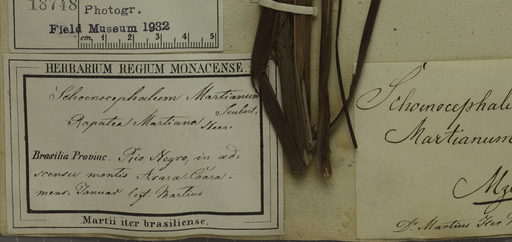 18748
Photogr.
Field Museum 1932
cm 1 2 3 4 5
HERBARIUM REGIUM MONACENSE
Schoenocephalum Martianum
Seubert.
Rapatea Martiana
Brasilia Provinc. Rio Negro, in ad-
scensu montis Arara-Coara-
mens. Januar leg. Martius
Martii iter brasiliense.
Schoenocephal
Martianum
Dr. Martius Iter